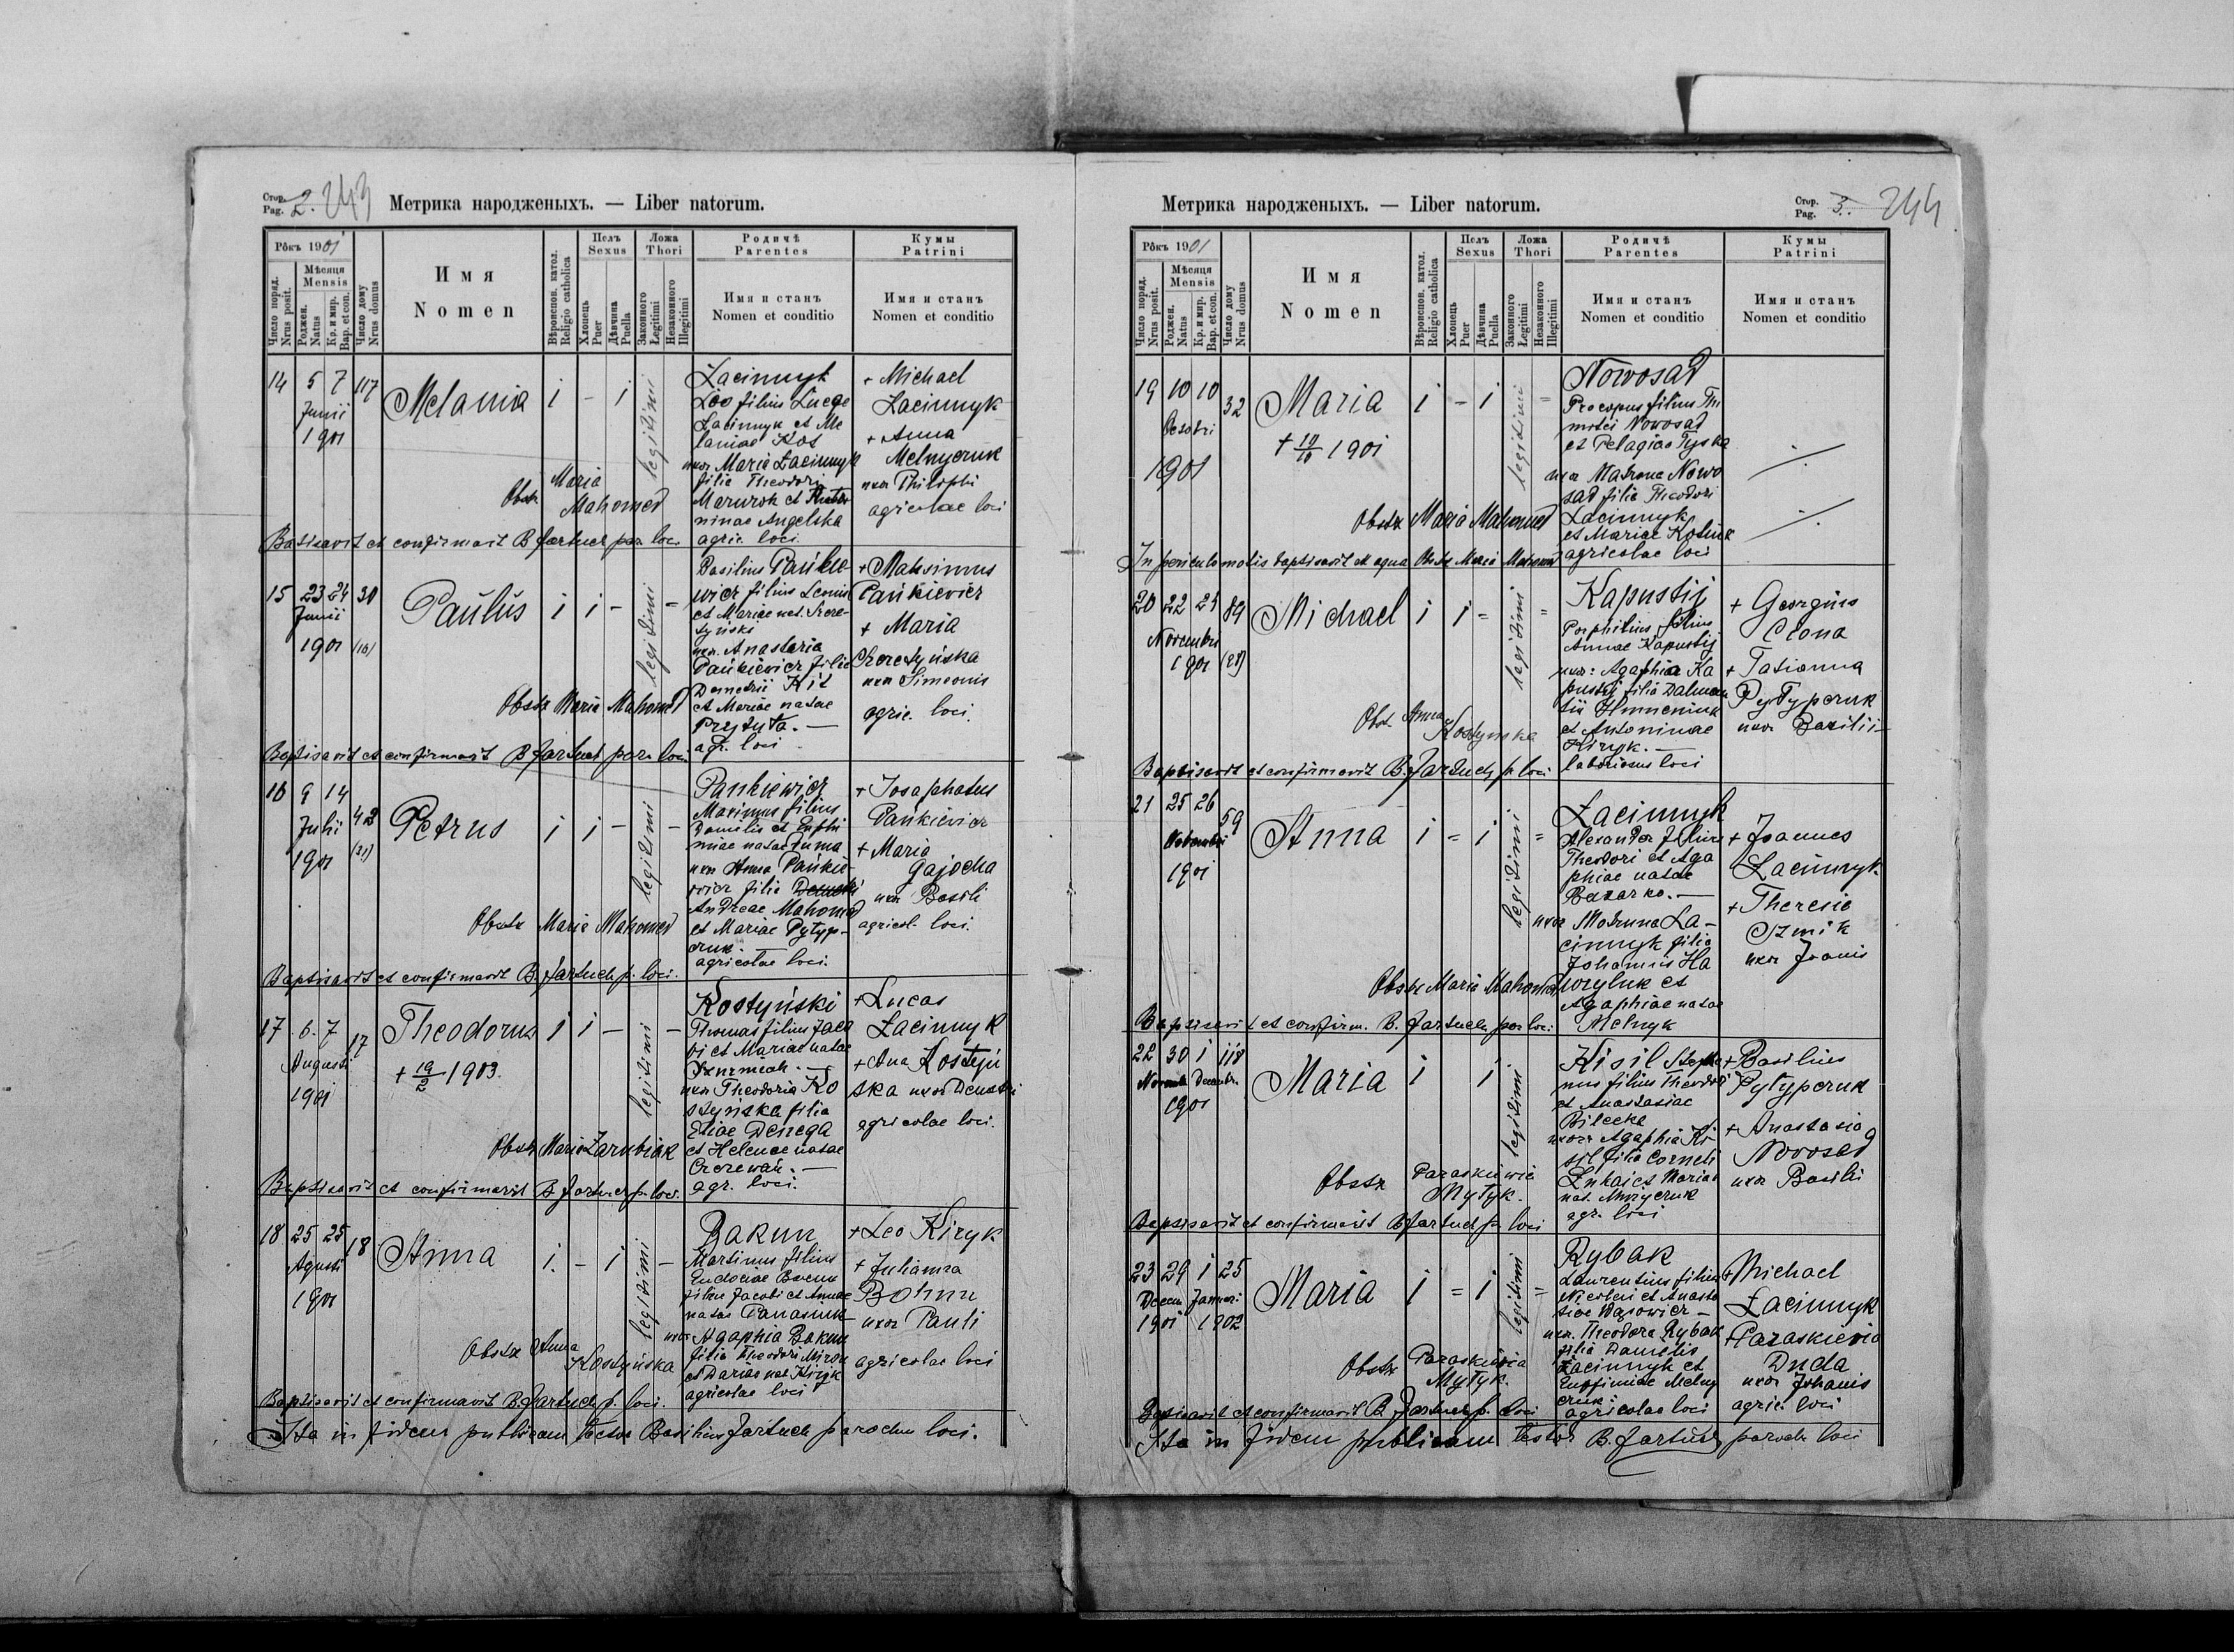 Стор. Pag. 2. 243
Метрика народженыхъ. — Liber natorum.
Рôкъ 1901
Число поряд. Nrus posit.
Мѣсяця Mensis
Роджен. Natus
Кр. и мир. Bap. et con.
Число дому Nrus domus
Имя
Nomen
Вѣроиспов. катол. Religio catholica
Полъ Sexus
Хлопець Puer
Дѣвчина Puella
Ложа Thori
Законного Legitimi
Незаконного Illegitimi
Родичѣ
Parentes
Имя и станъ
Nomen et conditio
Кумы
Patrini
Имя и станъ
Nomen et conditio
14 5 7 117
Junii
1901
Melania
i - i
legitimi
Łacinnyk
Leo filius Lucae
Łacinnyk et Me
laniae Kos
uxor Maria Łacinnyk
filia Theodori
Mazurok et Anto
ninae Angelska
agric. loci
+ Michael
Łacinnyk
+ Anna
Melnyczuk
uxor Philippi
agricolae loci
Obstx Maria
Mahomed
Batisavit et confirmavit B Jartuch par. loci
15 23 24 30
Junii
1901 (10)
Paulus
i i -
legitimi
Basilius Pańkie
wicz filius
et Mariae nat.
tyński
uxor Anastazia
Pańkiewicz filia
Demetrii Kit
et Mariae natae
Przytuła. —
agr. loci
+ Maksimus
Pańkiewicz
+ Maria
Cheretyńska
uxor Simeonis
agric. loci.
Obstx Maria Mahomed
Baptisavit et confirmavit B Jartuch par. loci
16 9 14 42
Julii
1901 (21)
Petrus
i i -
legitimi
Pankiewicz
Maximus filius
Danielis et Euphi
miae natae Tuma
uxor Anna Pańkie-
wicz filia
Andreae Mahomed
et Mariae Pytyp-
czuk. —
agricolae loci.
+ Josaphatus
Pańkiewicz
+ Maria
Gajocha
uxor Basili
agricol. loci.
Obstx Maria Mahomed
Baptisavit et confirmavit B. Jartuch p. loci.
17 6. 7 17
Augusti
1901
Theodorus
+ 19/2 1903.
i i -
legitimi
Kostyński
Thomas filius Jaco
bi et Mariae natae
uxor Theodosia Ko
styńska filia
Eliae Denega
et Helenae natae
Czerewań. —
agr. loci.
+ Lucas
Łacinnyk
+ Ana Kostyń
ska uxor Demetrii
agricolae loci.
Obstx Maria Zarubiak
Baptisavit et confirmavit B Jartuch p. loci.
18 25 25 18
Agusti
1901
Anna
i. - i -
legitimi
Bakun
Martinus filius
Eudociae Bakun
filiae Jacobi et Annae
natae Panasiuk
uxor Agaphia Bakun
filia Theodori Mirok
et Dariae nat Kiryk
agricolae loci
+ Leo Kiryk
+ Julianna
Bohnu
uxor Pauli
agricolae loci
Obstx Anna
Kostyńska
Baptisavit et confirmavit B. Jartuch p. loci.
Ita in fidem publicam testor Basilius Jartuch parochu loci.
Метрика народженыхъ. — Liber natorum.
Стор. Pag. 3. 244
Рôкъ 1901
Число поряд. Nrus posit.
Мѣсяця Mensis
Роджен. Natus
Кр. и мир. Bap. et con.
Число дому Nrus domus
Имя
Nomen
Вѣроиспов. катол. Religio catholica
Полъ Sexus
Хлопець Puer
Дѣвчина Puella
Ложа Thori
Законного Legitimi
Незаконного Illegitimi
Родичѣ
Parentes
Имя и станъ
Nomen et conditio
Кумы
Patrini
Имя и станъ
Nomen et conditio
19 10 10 32
Octobri
1901
Maria
+ 10/10 1901
i - i =
legitimi
Nowosad
Procopus filius Thi
motei Nowosad
et Pelagiae Tyska
uxor Matrona Nowo
sad filia Theodori
Łacinnyk
et Mariae Kostiuk
agricolae loci
Obstx Maria Mahomed
In periculo motis baptisavit et aqua Obstx Maria Mahomed
20 22 24 89
Novembri
1901 (28)
Michael
i i = =
legitimi
Kapustij
Porphilius filius
Annae Kapustij
uxor: Agaphia Ka
pustij filia Dalma
tii Hmneniuk
et Antoninae
Kiryk. —
laboriosus loci
+ Georgius
Clona
+ Tatianna
Pytypczuk
uxor Basilii —
Obst. Anna
Kostynska
Baptisavit et confirmavit B. Jartuch p. loci
21 25 26 59
Novembri
1901
Anna
i = i =
legitimi
Łacinnyk
Alexander filius
Theodori et Aga
phiae natae
Bazarko. —
uxor Matruna Ła-
cinnyk filia
Johannis Ha
wryluk et
Agaphiae natae
Melnyk
+ Joannes
Łacinnyk
+ Theresia
Szmik
uxor Joanis
Obstx Maria Mahomed
Baptisavit et confirm. B. Jartuch par loci.
22 30 1 118
Novemb Decembr.
1901
Maria
i i
legitimi
Kisil Stepha
nus filius Theodori
et Anastasiae
Bilecka
uxor Agaphia Ki-
sil filia Corneli
Łukai et Mariae
nat. Myryczuk
agr. loci
+ Basilius
Pytypczuk
+ Anastasia
Novosad
uxor Basilii
Obstx Paraskiewia
Mytyk.
Baptisavit et confirmavit B Jartuch p. loci
23 29 1 25
Decem Januari
1901 1902
Maria
i = i =
legitimi
Rybak
Laurentius filius
Nicolai et Anasta
siae Wąsowicz —
uxor. Theodora Rybak
filia Danielis
Łacinnyk et
Eupfimiae Melny
czuk.
agricolae loci
+ Michael
Łacinnyk
+ Paraskievia
Duda
uxor Johanis
agric. loci
Obstx Paraskiewia
Mytyk.
Baptisavit et confirmavit B Jartuch p. loci
Ita in fidem publicam testor B. Jartuch paroch loci